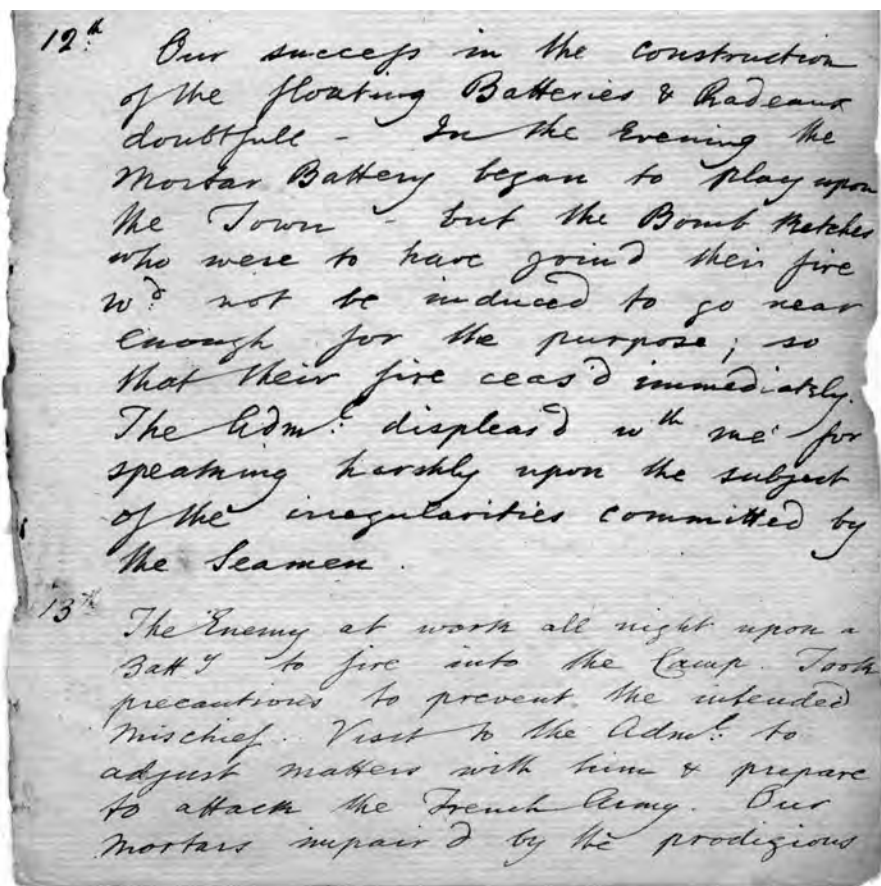 12th. Our success in the construction
of the floating Batteries & Radeaux
doubtfull - In the Evening the
Mortar Battery began to play upon
the Town - but the Bomb Ketches
who were to have join'd their fire
wd. not be induced to go near
enough for the purpose; so
that their fire ceas'd immediately.
The Adml. displeas'd wth me for
speaking harshly upon the subject
of the irregularities committed by
the Seamen.
13th The Enemy at work all night upon a
Batty to fire into the Camp. Took
precautions to prevent the intended
Mischief. Visit to the Adml. to
adjust matters with him & prepare
to attack the French Army. Our
Mortars impair'd by the prodigious